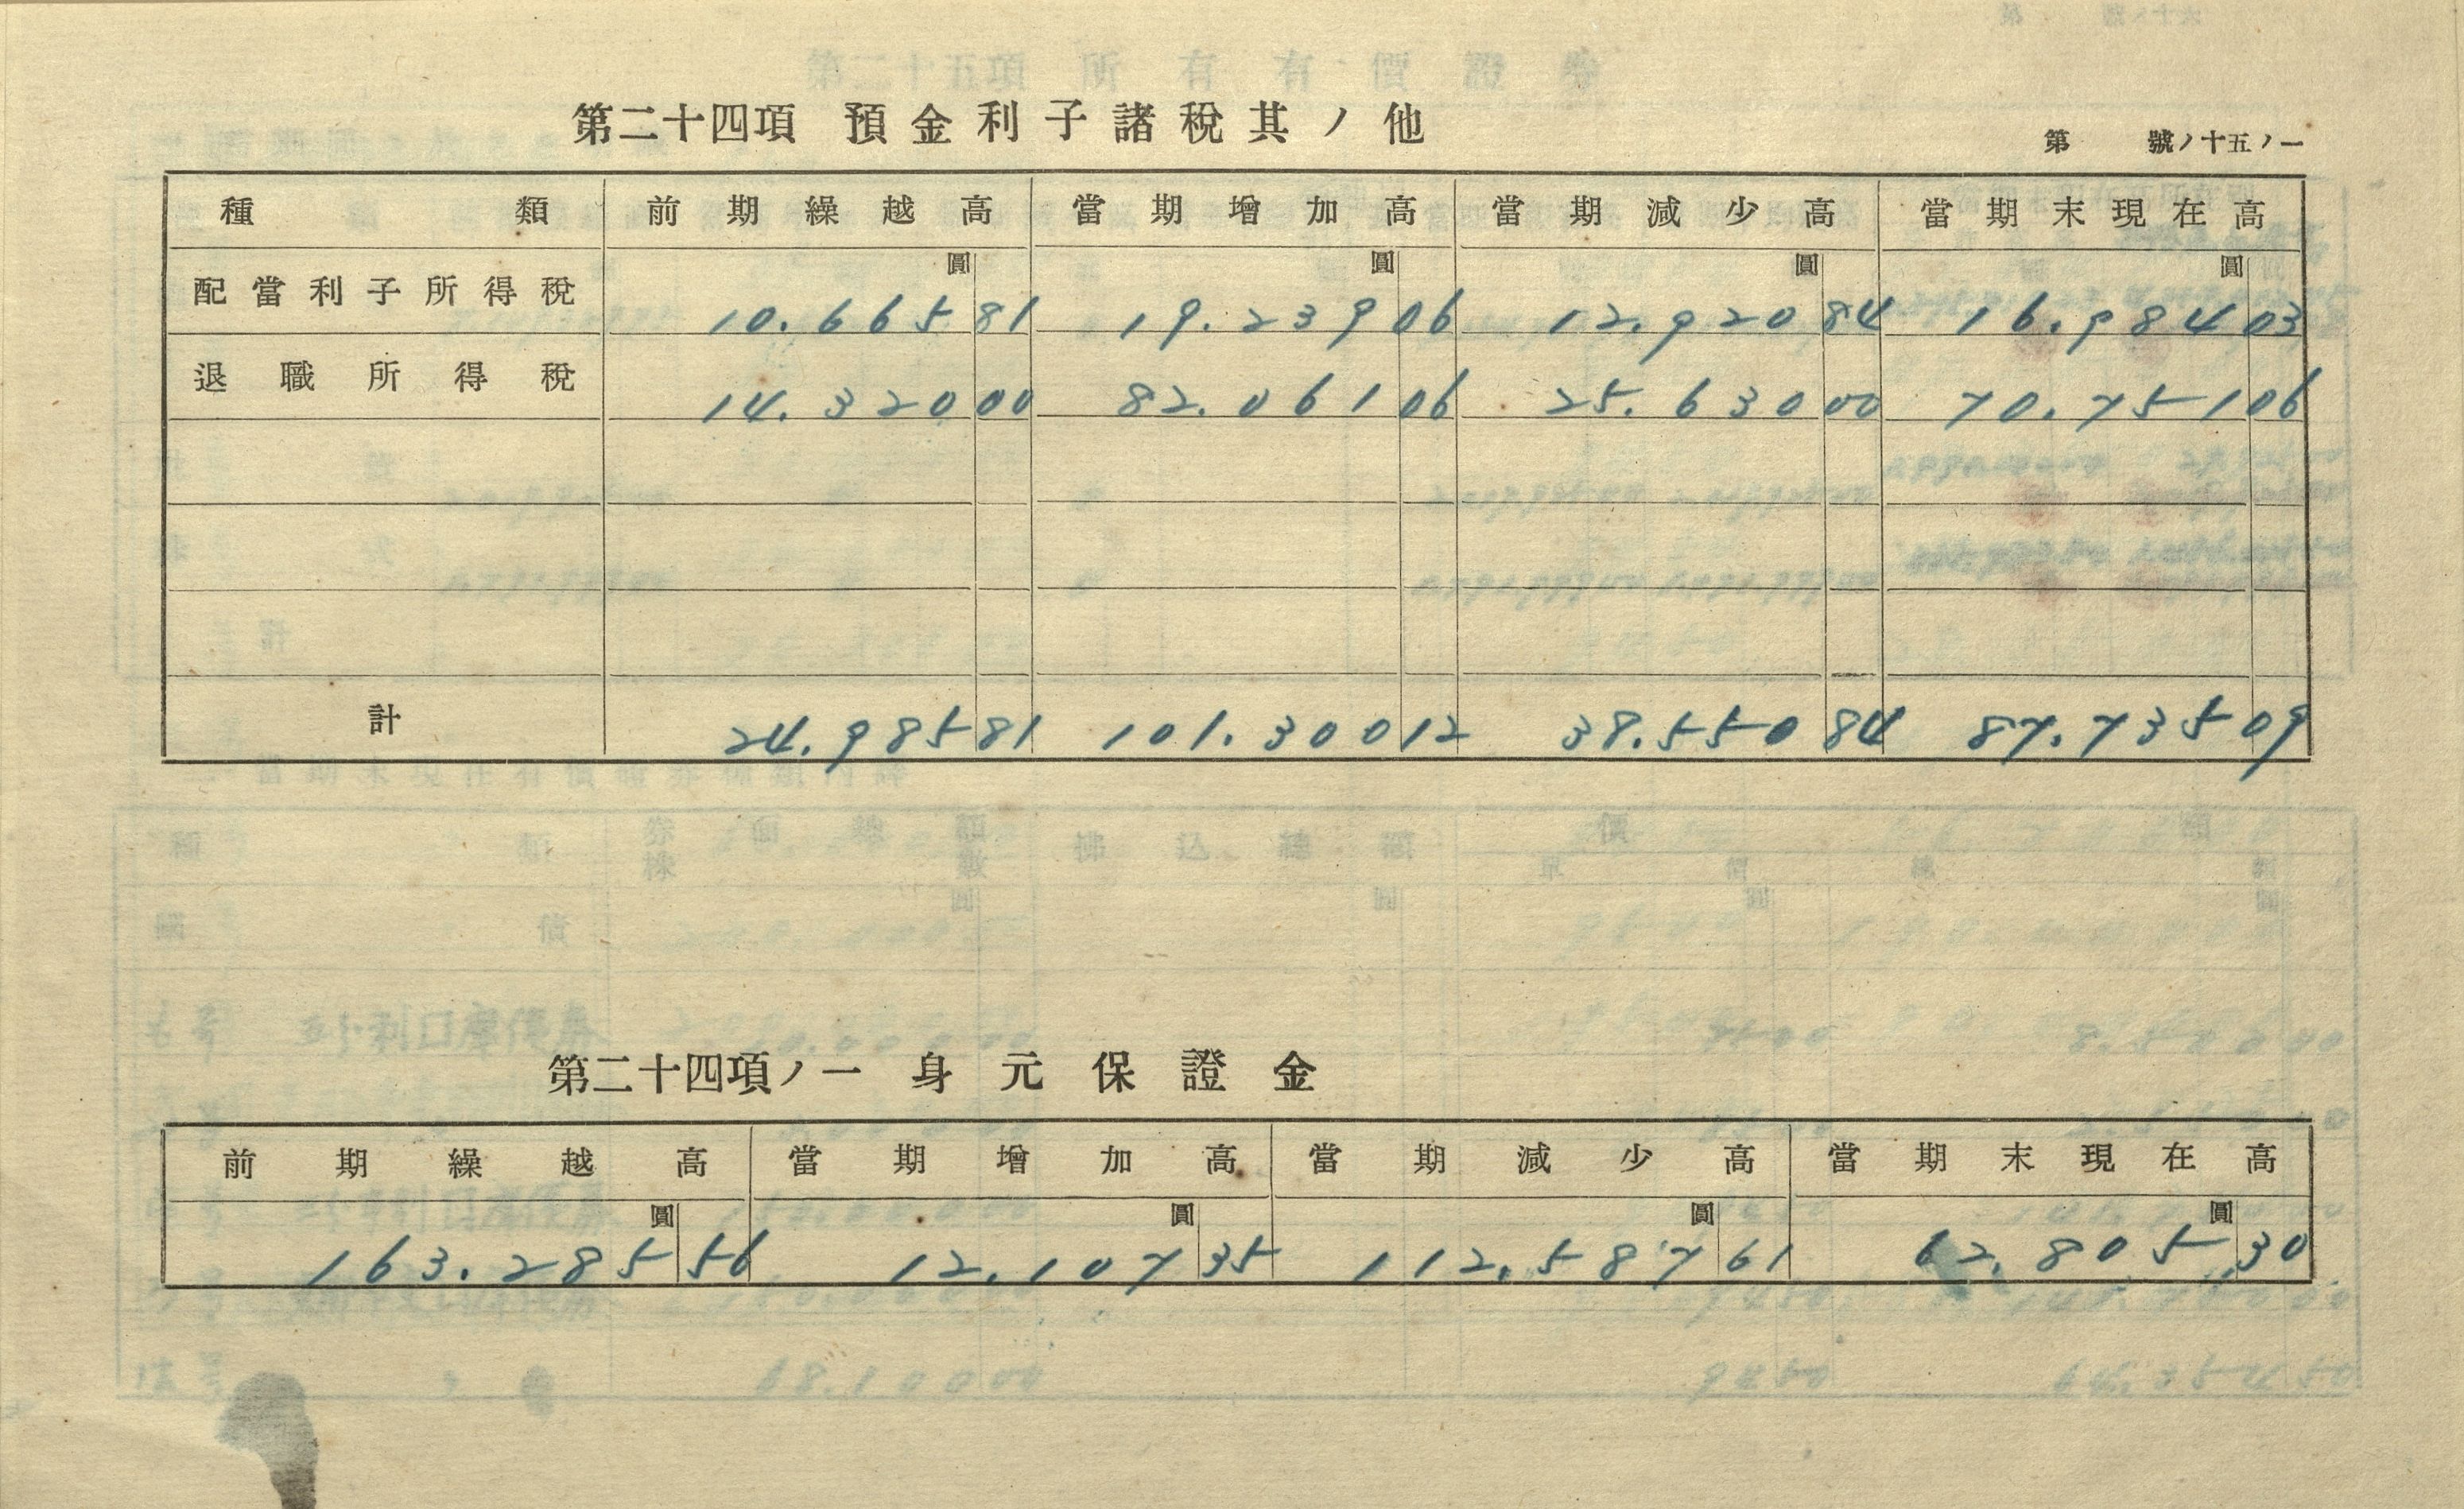 第二十四項 預金利子諸稅其ノ他
第 號ノ十五ノ一
種類 前期繰越高 當期增加高 當期減少高 當期末現在高
圓 圓 圓 圓
配當利子所得稅 10.665 81 19.239 06 12.920 84 16.984 03
退職所得稅 14.320 00 82.061 06 25.630 00 70.751 06
計 24.985 81 101.300 12 38.550 84 87.735 09
第二十四項ノ一 身元保證金
前期繰越高 當期增加高 當期減少高 當期末現在高
圓 圓 圓 圓
163.285 56 12.107 35 112.587 61 62.805 30